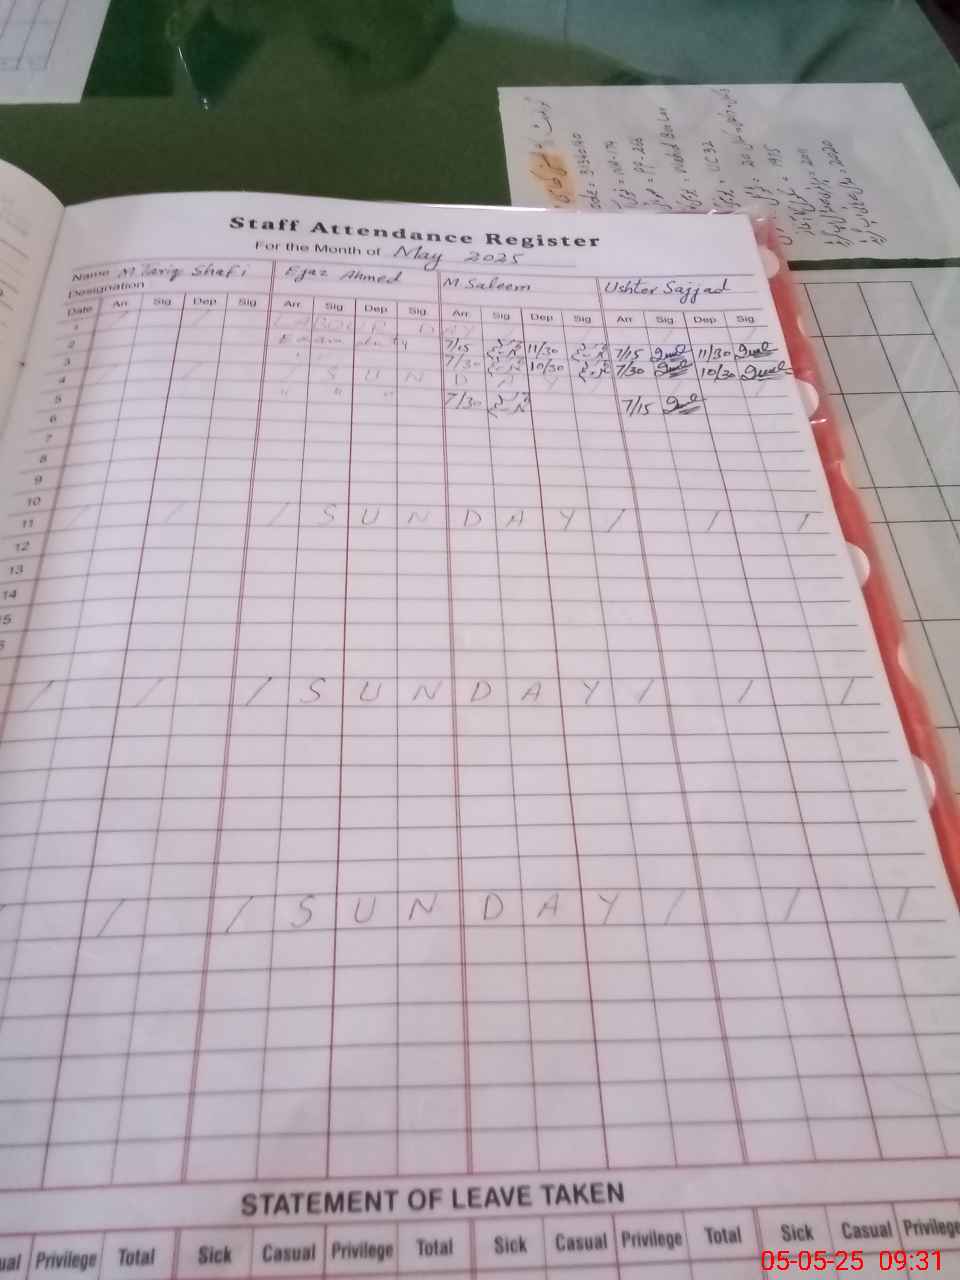 Code = 31340140
NA-174
PP-266
UC 32
1975
2011
2020
Staff Attendance Register
For the Month of May 2025
Name M. Tariq Shafi Ejaz Ahmed M. Saleem Ushter Sajjad
Designation
Date Arr. Sig. Dep. Sig. Arr. Sig. Dep. Sig. Arr. Sig. Dep. Sig. Arr. Sig. Dep. Sig.
1 LABOUR DAY
2 Exam duty 7/15 11/30 7/15 11/30
3 " 7/30 10/30 7/30 10/30
4 SUNDAY
5 " " " 7/30 7/15
6
7
8
9
10
11 SUNDAY
12
13
14
5
SUNDAY
SUNDAY
STATEMENT OF LEAVE TAKEN
ual Privilege Total Sick Casual Privilege Total Sick Casual Privilege Total Sick Casual Privilege
05-05-25 09:31